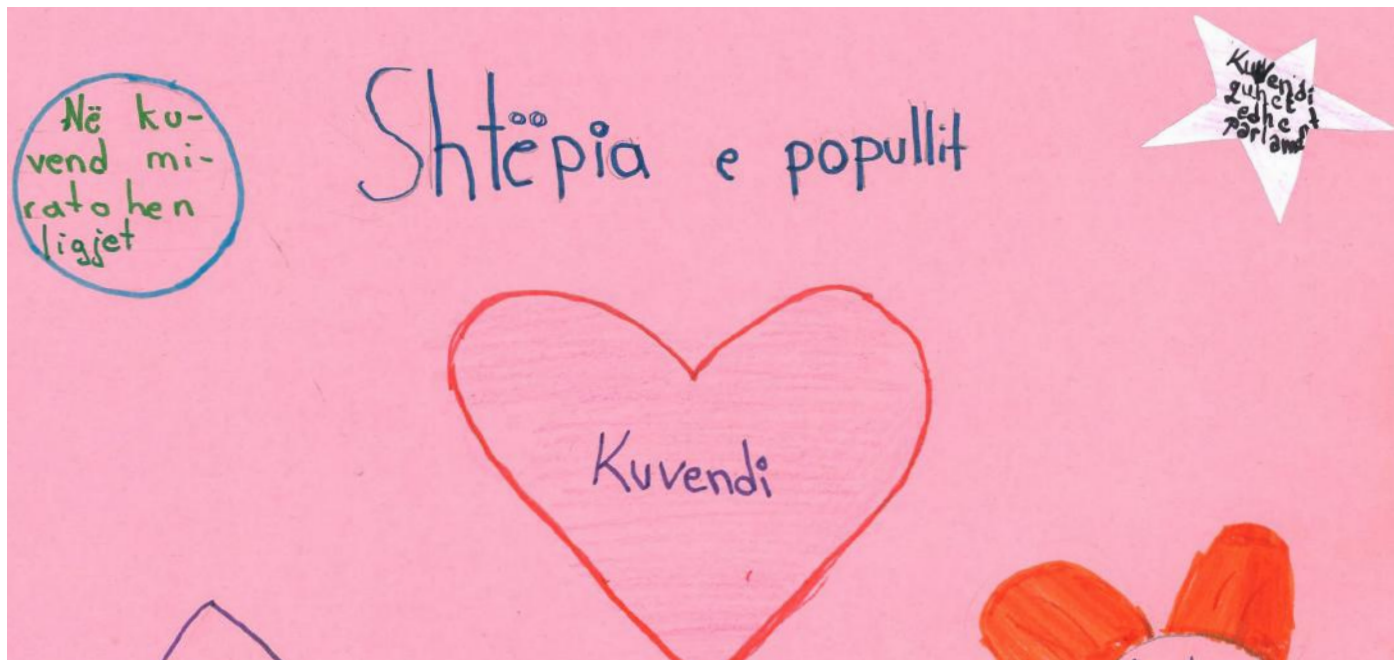 Në ku-
vend mi-
ratohen
ligjet
Shtëpia e popullit
Kuvendi
quhet
edhe
parlament
Kuvendi